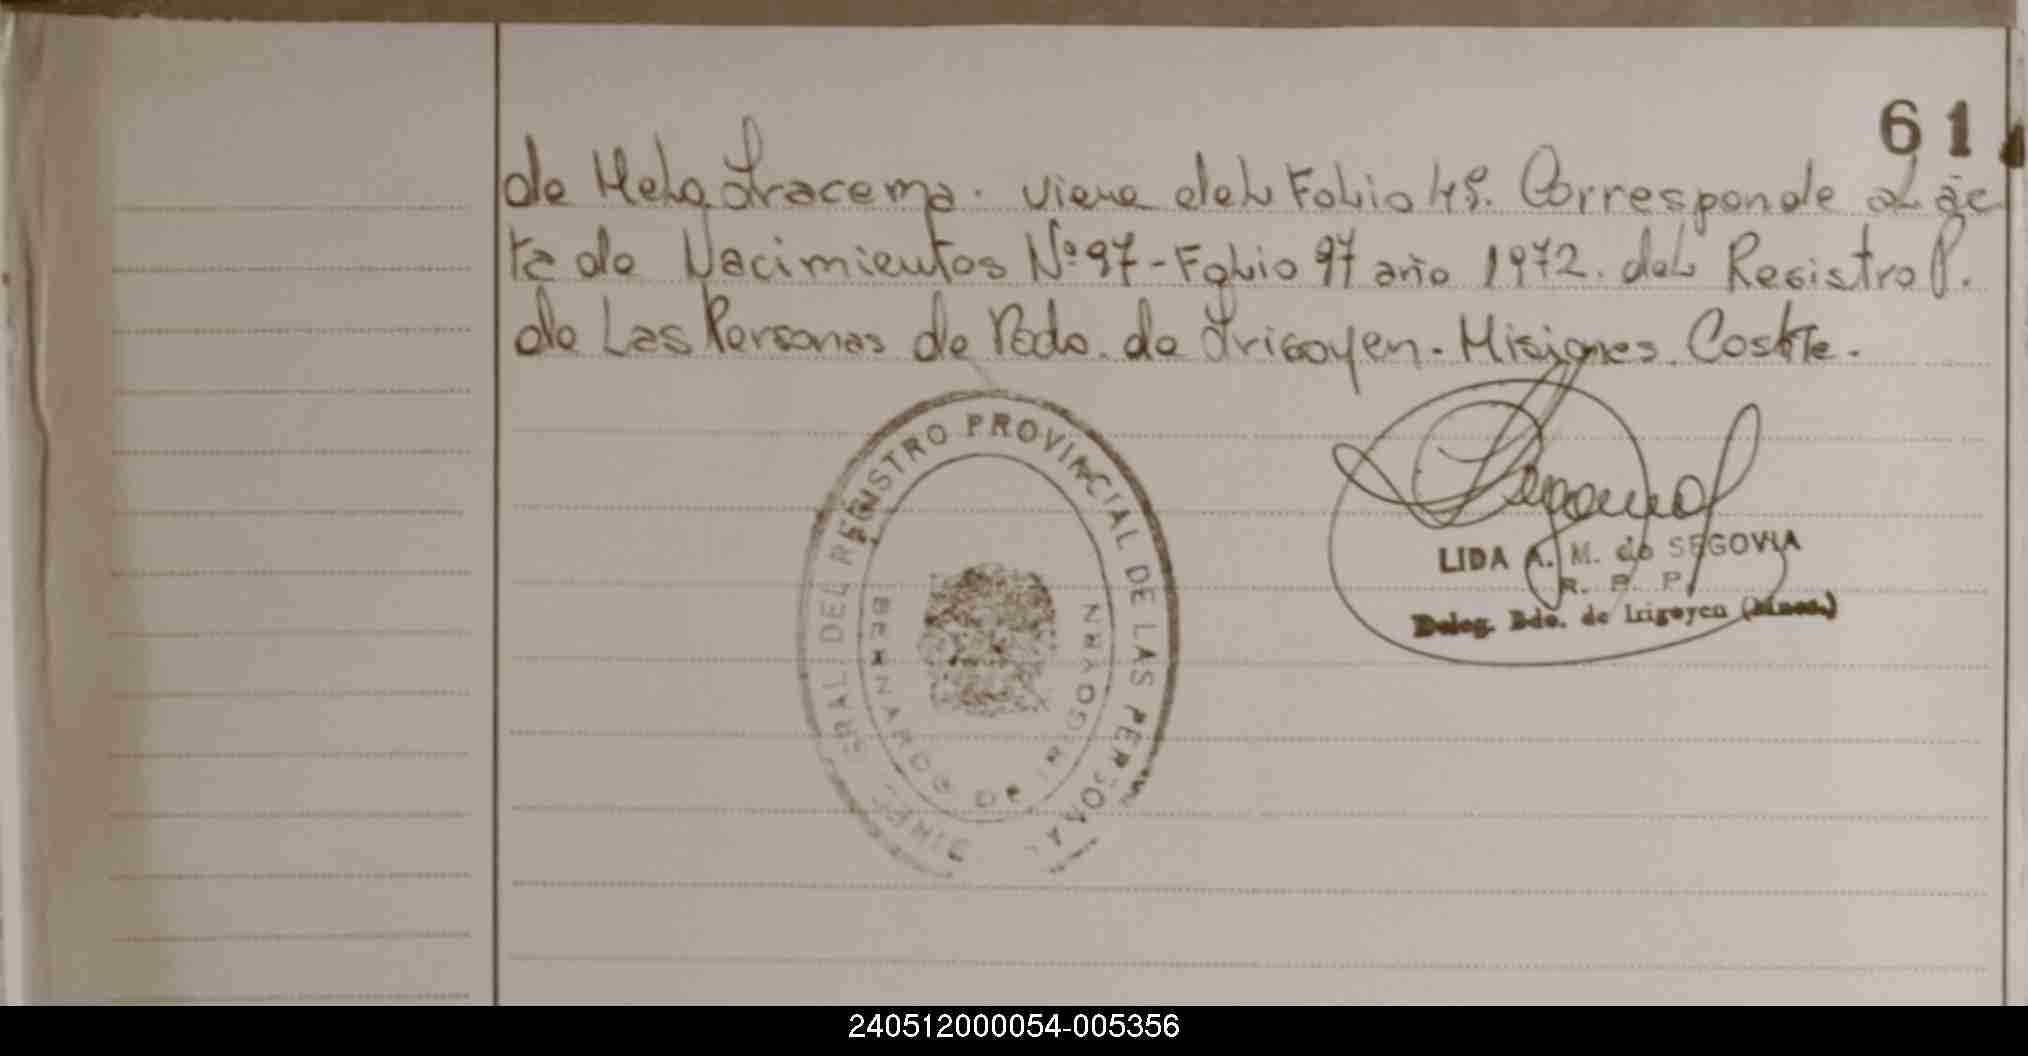 61
de Melo Iracema. viene del Folio 49. Corresponde al ac
ta de Nacimientos Nº 97 - Folio 97 año 1972. del Registro P.
de Las Personas de Bdo. de Irigoyen. Misiones. Coste.
REGISTRO PROVINCIAL DE LAS PERSONAS
BERNARDO DE IRIGOYEN
LIDA A. M. de SEGOVIA
R. P. P.
Deleg. Bdo. de Irigoyen (Mnes.)
240512000054-005356